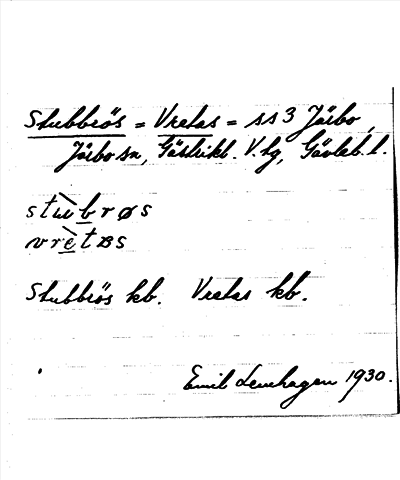 Stubbrös = Vretas = ss 3 Järbo,
Järbo sn, Gästrikl. V. tg, Gävleb. l.
stùbrøs
vrètas
Stubbrös kb. Vretas kb.
Emil Levehagen 1930.